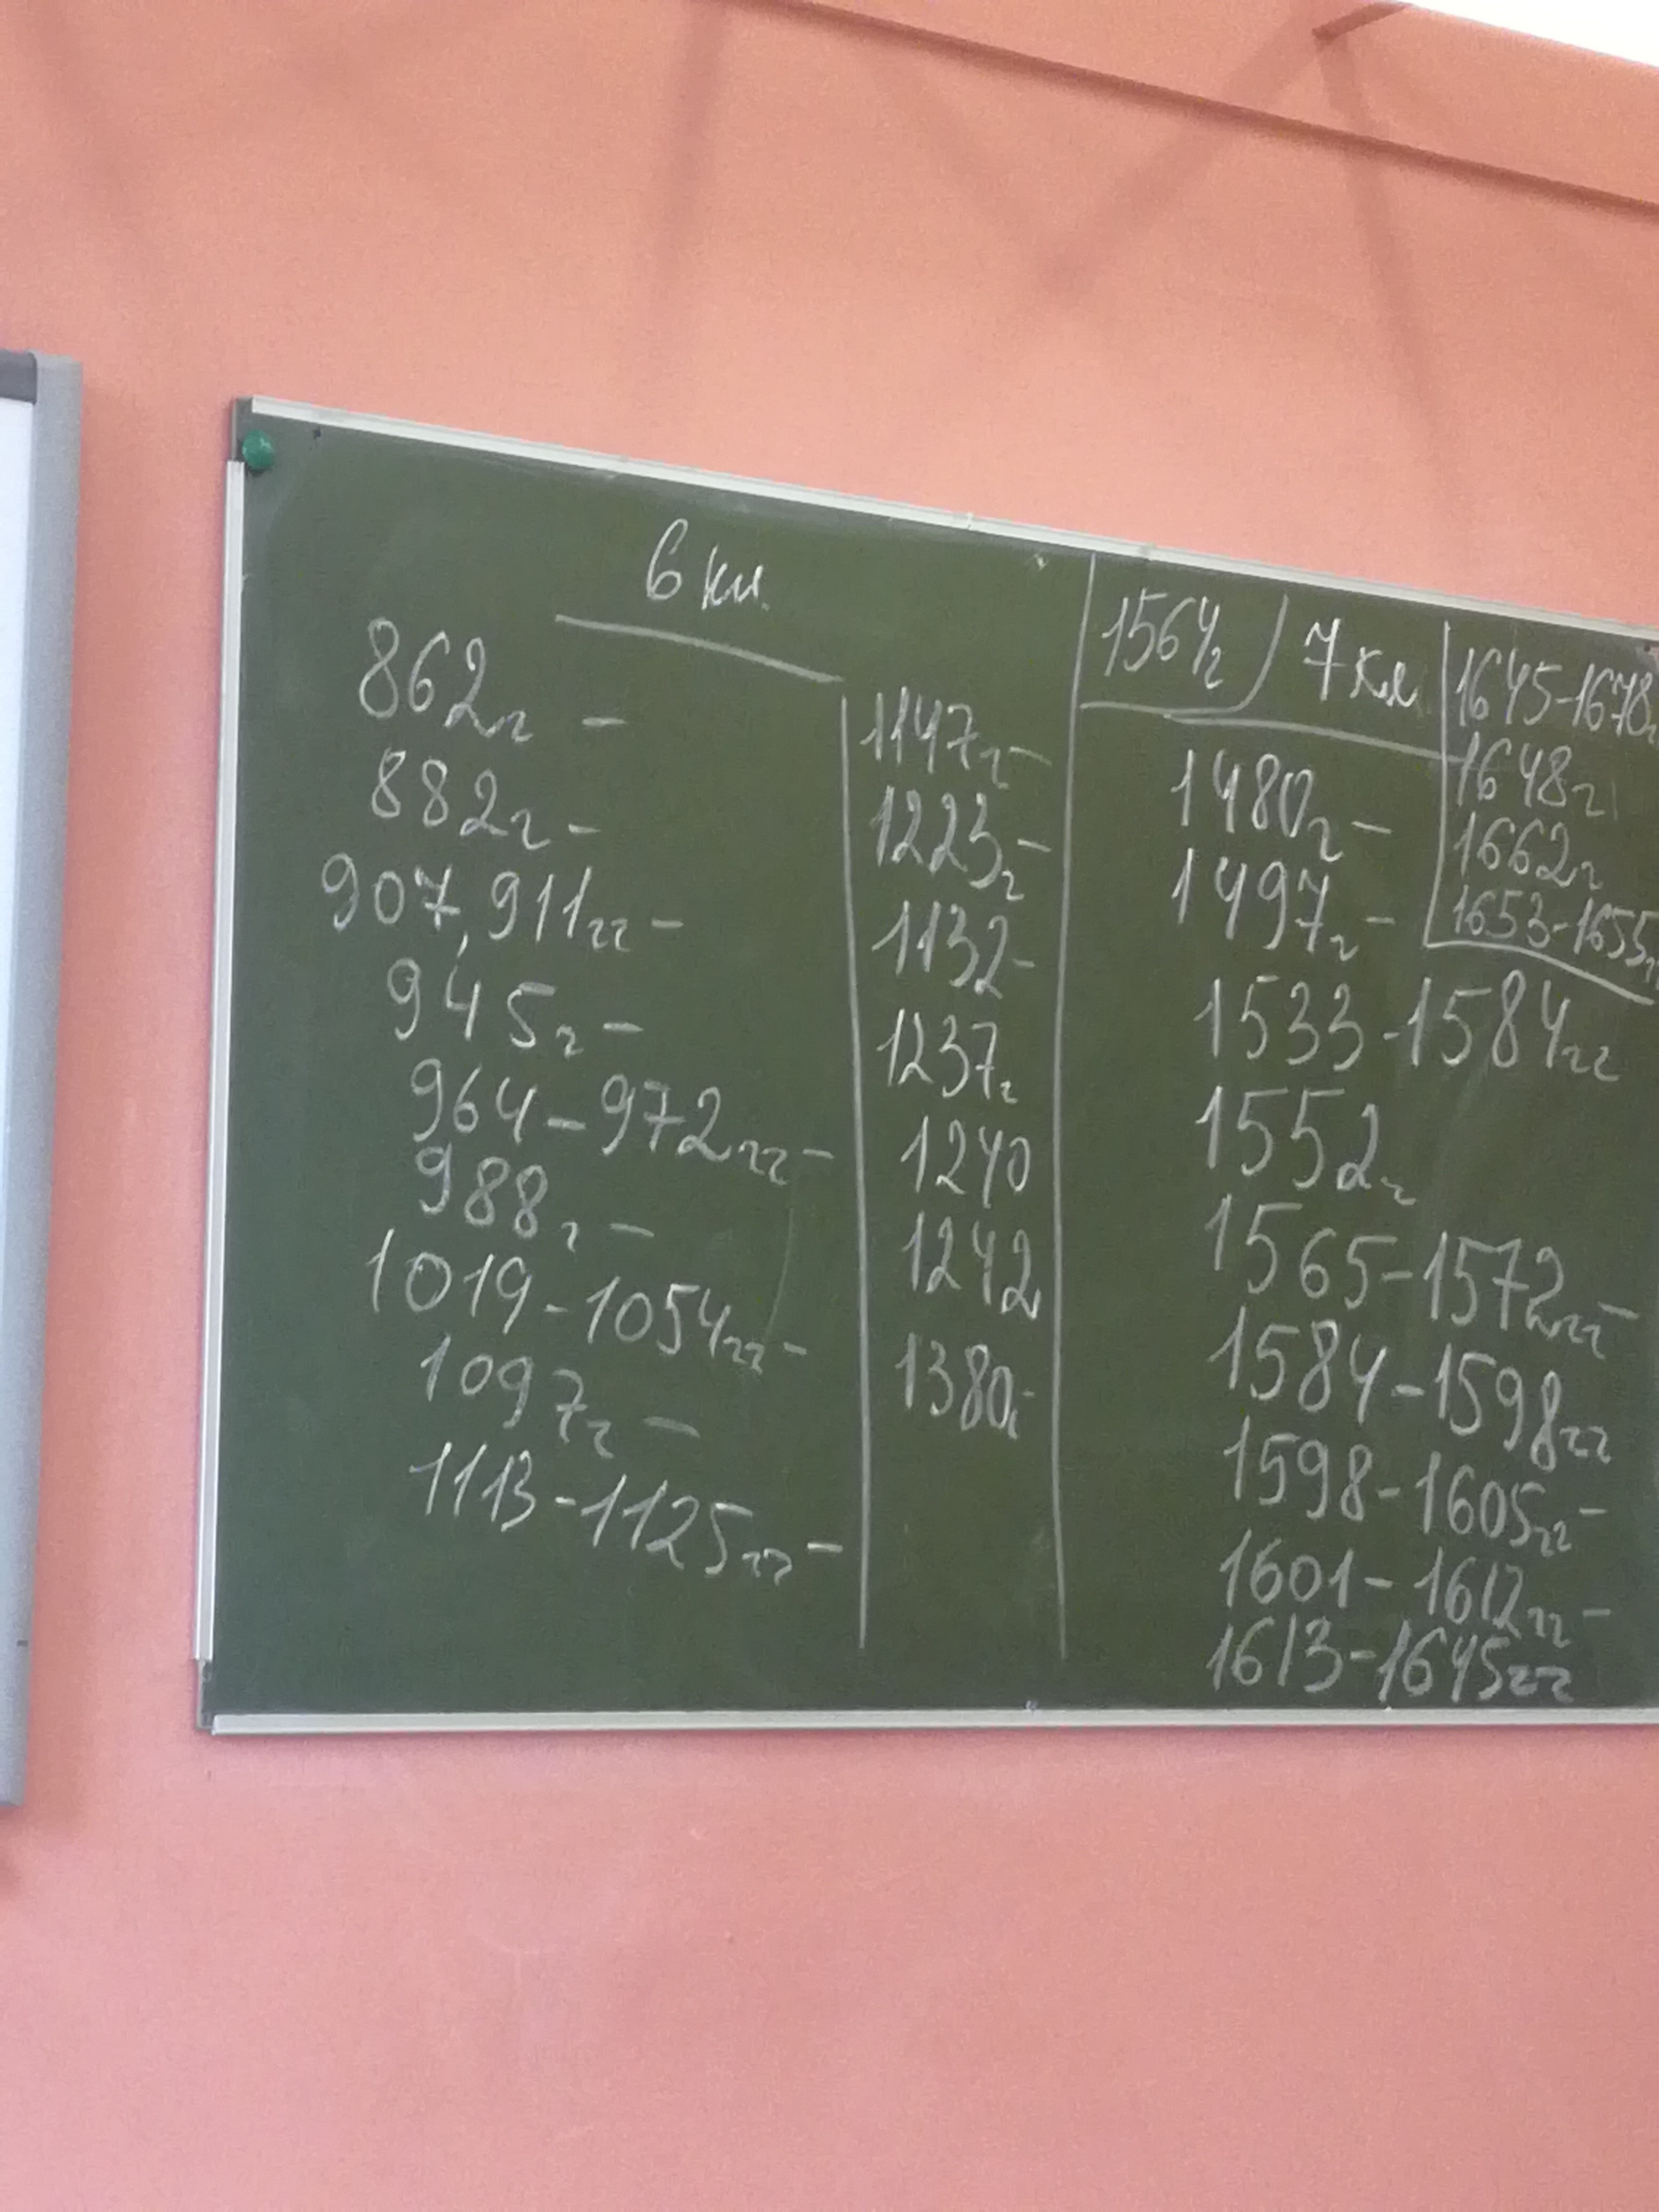 6 кл.
862г -
882г -
907, 911гг -
945г -
964 - 972гг -
988г -
1019 - 1054гг -
1097г -
1113 - 1125гг -
1147г -
1223г -
1132 -
1237г
1240
1242
1380г -
1564г
7 кл
1480г -
1497г -
1533 - 1584гг
1552г
1565 - 1572гг -
1584 - 1598гг
1598 - 1605гг -
1601 - 1612гг -
1613 - 1645гг
1645 - 1678г
1648г
1662г
1653 - 1655гг